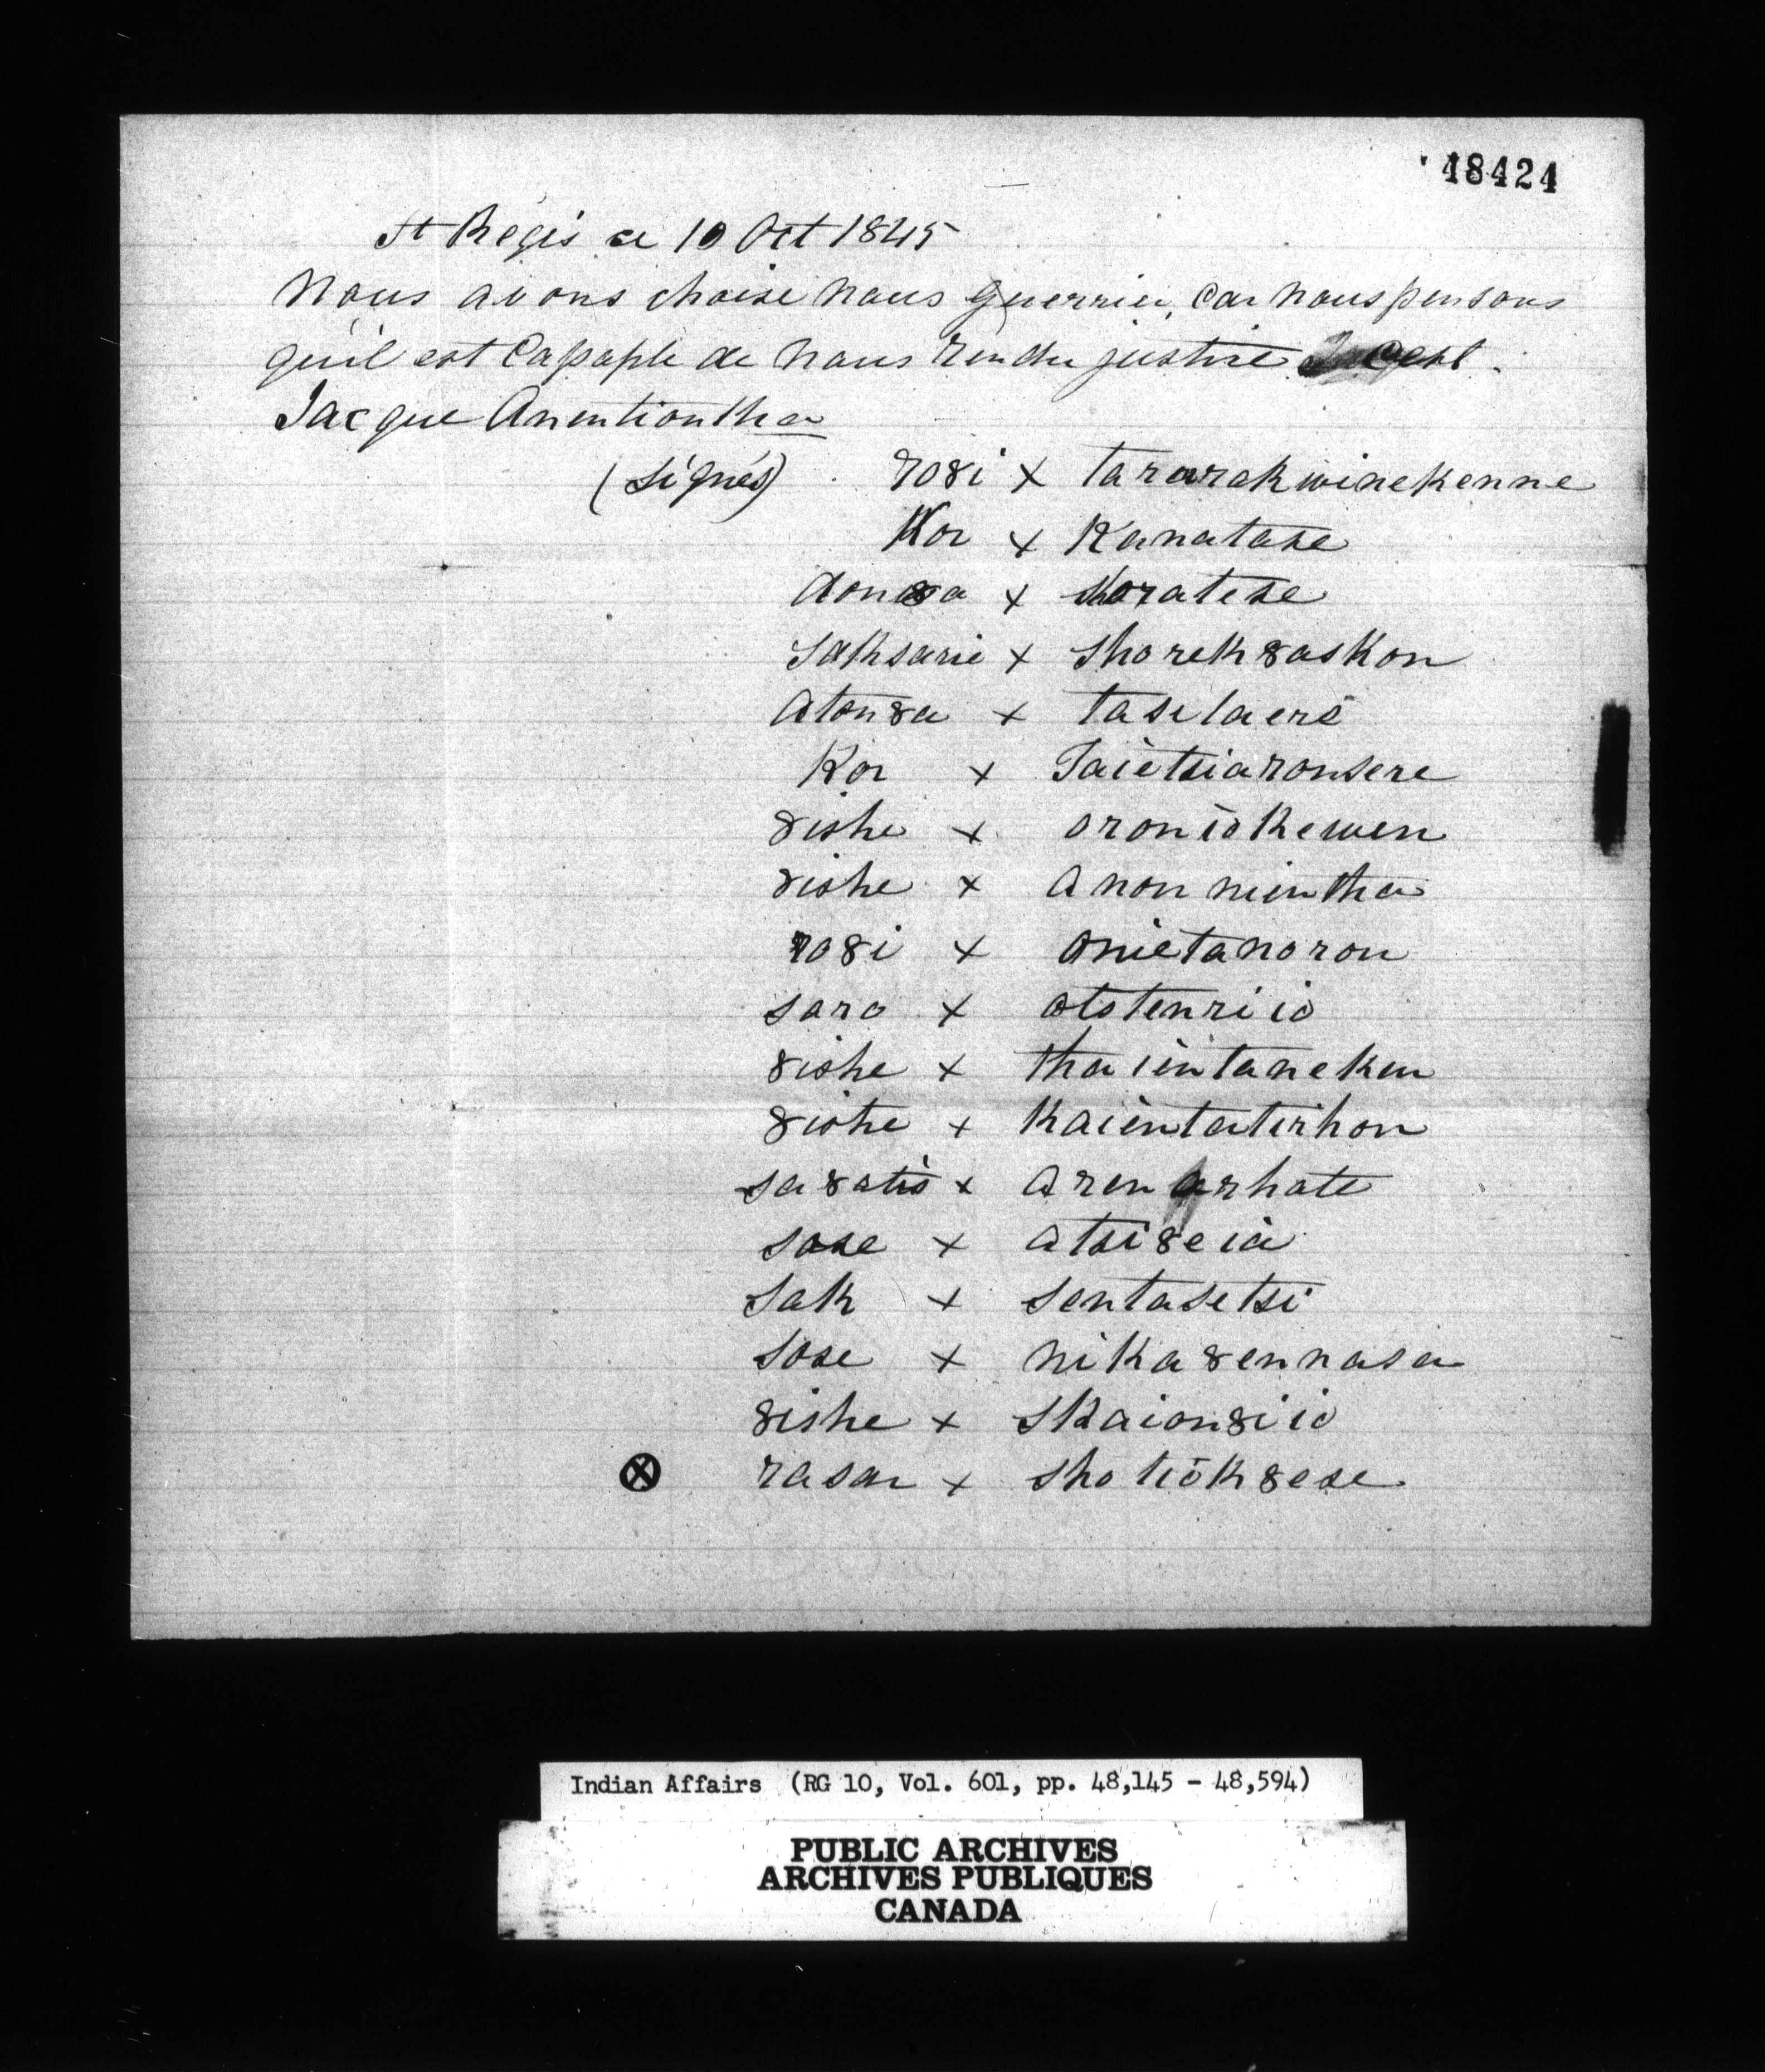 48424
St Regis ce 10 Oct 1845
Nous avons choisi nous guerrier, Car nous pensons
qu'il est Capaple de nous rendre justice C'est
Jacque Anentiontha
(Signés) ro8i x tararakwinekenne
Kor x Kanatase
Aton8a x Skoratese
Saksarie x Shorek8askon
Aton8a x taselaere
Kor x Taietsiaronsere
8ishe x oroniokewen
8ishe x anonnientha
ro8i x onietanoron
saro x otstenriio
8ishe x thaientaneken
8ishe x Kaientatirhon
sa8atis x Arenarhate
sose x atsi8eia
Sak x sentasetsi
Sose x nika8ennasa
8ishe x Skaion8iio
⊗ rasar x shotiok8ese
Indian Affairs (RG 10, Vol. 601, pp. 48,145 - 48,594)
PUBLIC ARCHIVES
ARCHIVES PUBLIQUES
CANADA